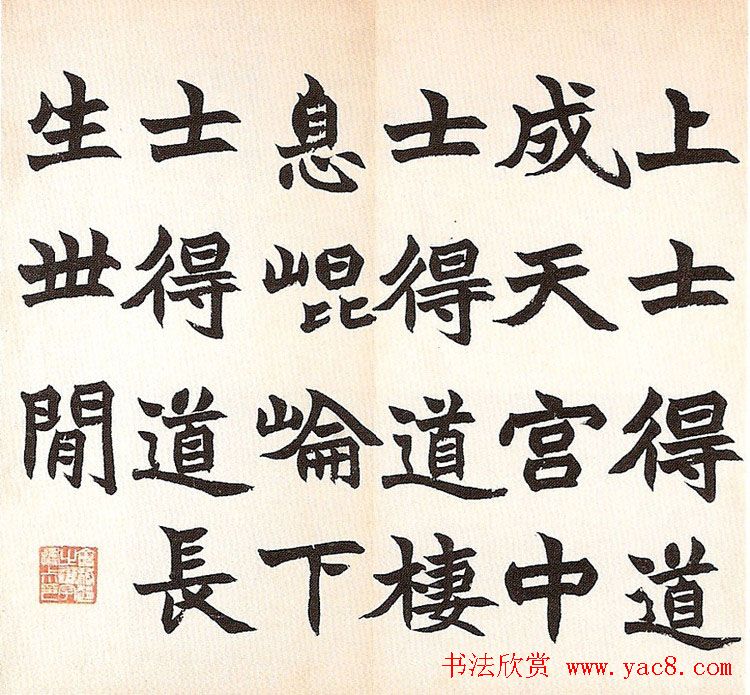 上士得道
成天宫中
士得道棲
息崐崘下
士得道長
生丗閒
书法欣赏 www.yac8.com